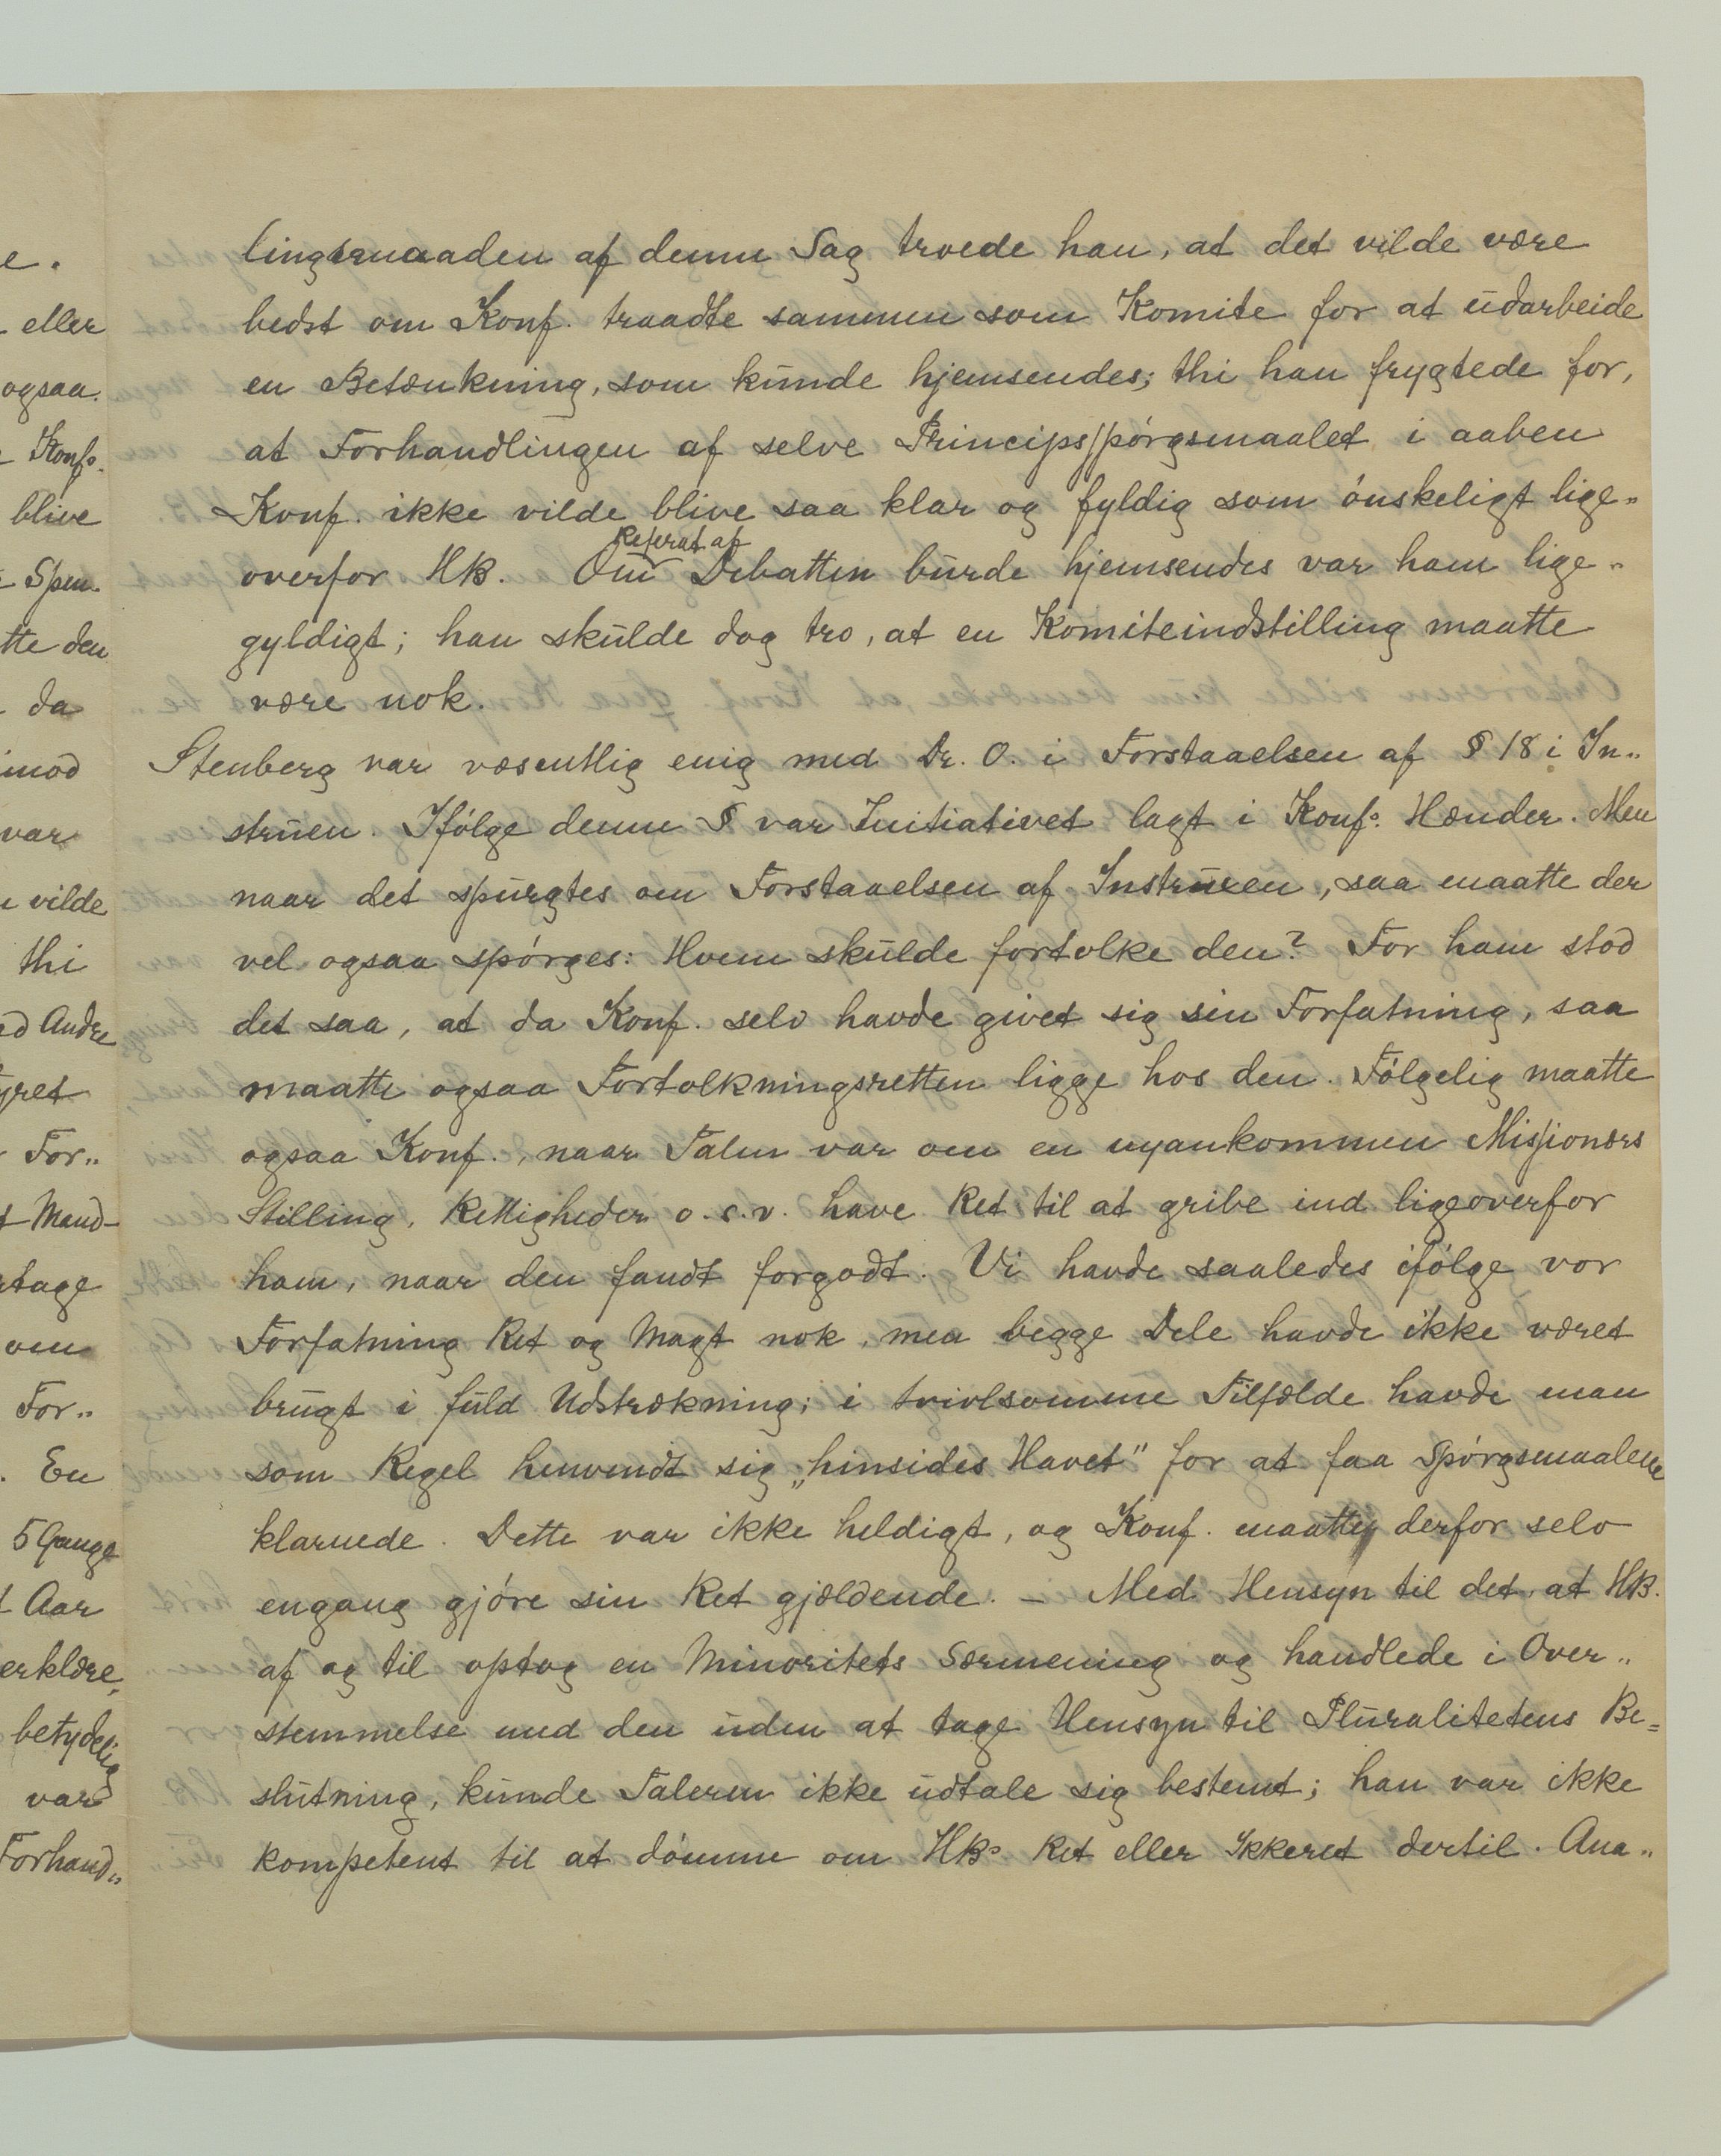 e.
eller
ogsaa.
Konfs.
blive
Spen-
tte den
da
imod
var
vilde
thi
ed Andre
yret
For„
Mand-
rtage
om
For„
. En
5 Gange
t Aar
erklære,
betydelig
var
Forhand„
lingsmaaden af denne Sag troede han, at det vilde være
bedst om Konf. traadte sammen som Komite for at udarbeide
en Betænkning, som kunde hjemsendes; thi han frygtede for,
at Forhandlingen af selve Principsspørgsmaalet i aaben
Konf. ikke vilde blive saa klar og fyldig som ønskeligt lige„
Referat af
overfor HB. Om Debatten burde hjemsendes var ham lige„
gyldigt; han skulde dog tro, at en Komiteindstilling maatte
være nok.
Stenberg var væsentlig enig med Dr. O. i Forstaaelsen af § 18 i In„
struen. Ifølge denne § var Initiativet lagt i Konfs. Hænder. Men
naar det spurgtes om Forstaaelsen af Instruxen, saa maatte der
vel ogsaa spørges: Hvem skulde fortolke den? For ham stod
det saa, at da Konf. selv havde givet sig sin Forfatning, saa
maatte ogsaa Fortolkningsretten ligge hos den. Følgelig maatte
ogsaa Konf., naar Talen var om en nyankommen Missionærs
Stilling, Rettigheder o.s.v. have Ret til at gribe ind ligeoverfor
ham, naar den fandt forgodt. Vi havde saaledes ifølge vor
Forfatning Ret og Magt nok, men begge Dele havde ikke været
brugt i fuld Udstrækning; i tvivlsomme Tilfælde havde man
som Regel henvendt sig „hinsides Havet" for at faa Spørgsmaalene
klarnede. Dette var ikke heldigt, og Konf. maatte derfor selv
engang gjøre sin Ret gjældende. – Med Hensyn til det, at HB.
af og til optog en Minoritets Særmening og handlede i Over„
stemmelse med den uden at tage Hensyn til Pluralitetens Be=
slutning, kunde Taleren ikke udtale sig bestemt; han var ikke
kompetent til at dømme om HBs Ret eller Ikkeret dertil. Ana„